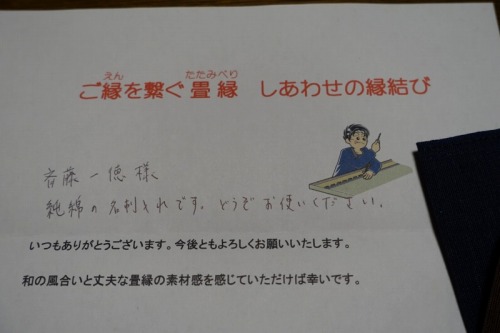 えん　たたみべり
ご縁を繋ぐ畳縁　しあわせの縁結び
斉藤一徳様
純綿の名刺入れです。どうぞお使いください。
いつもありがとうございます。今後ともよろしくお願いいたします。
和の風合いと丈夫な畳縁の素材感を感じていただけば幸いです。